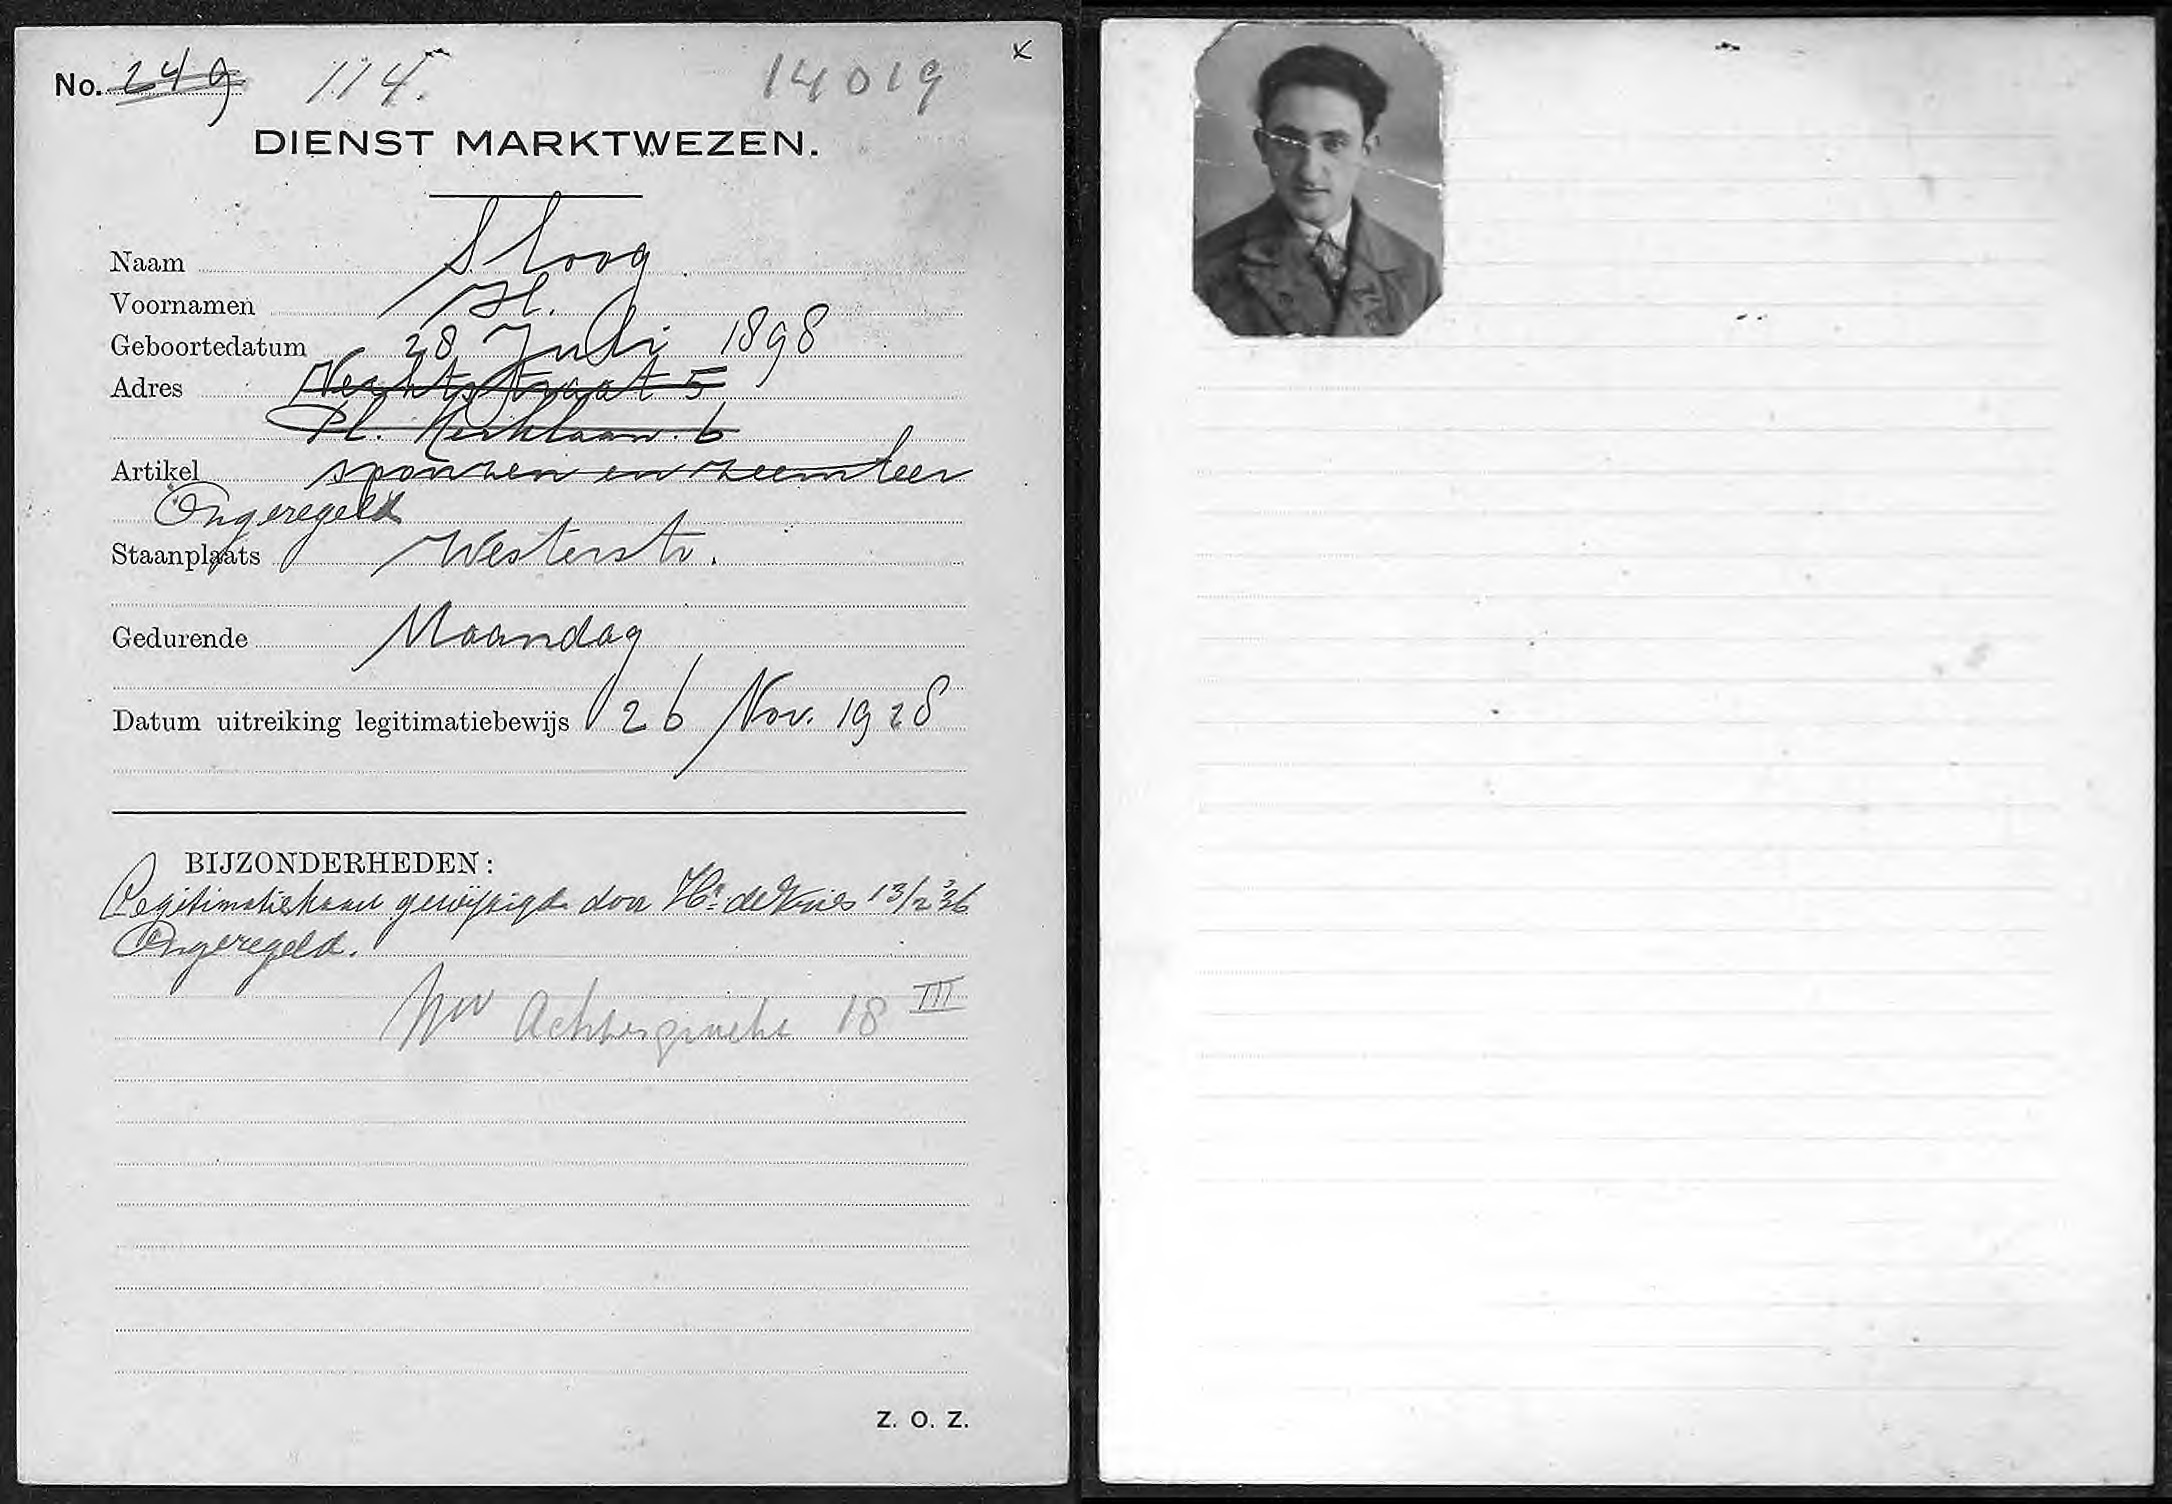 No. 249 114. 14019 x
DIENST MARKTWEZEN.
Naam Sloog
Voornamen H.
Geboortedatum 28 Juli 1898
Adres Vechtstraat 5
Pl. Kerklaan. 6
Artikel sponzen en zeemleer
Ongeregeld
Staanplaats Westerstr.
Gedurende Maandag
Datum uitreiking legitimatiebewijs 26 Nov. 1928
BIJZONDERHEDEN:
Legitimatiekaart gewijzigd door Hr. de Vries 13/2 '36
Ongeregeld.
Nw Achtergracht 18 III
Z. O. Z.